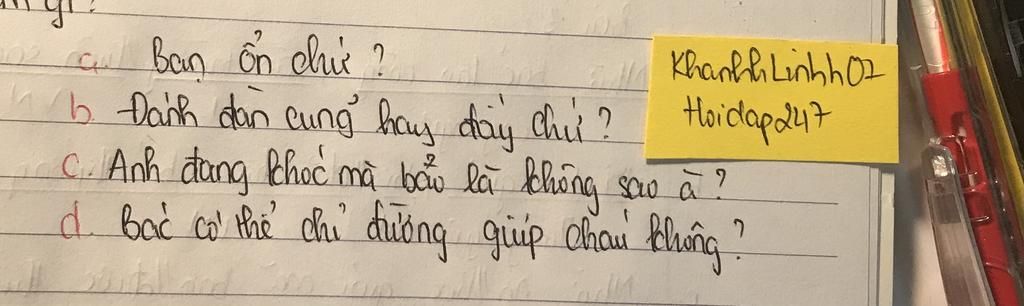 gì?
a Bạn ổn chứ?
b Đánh đàn cũng hay đấy chứ?
c. Anh đang khóc mà bảo là không sao à?
d. Bác có thể chỉ đường giúp cháu không?
KhanhhLinhh02
Hoidap247